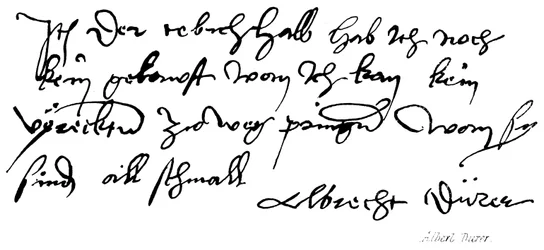 Der hab Ich noch
kein gekawft wan Ich kan kein
zw weg pringen wan sy
sind all schmall
Albrecht Dürer
Albert Durer.